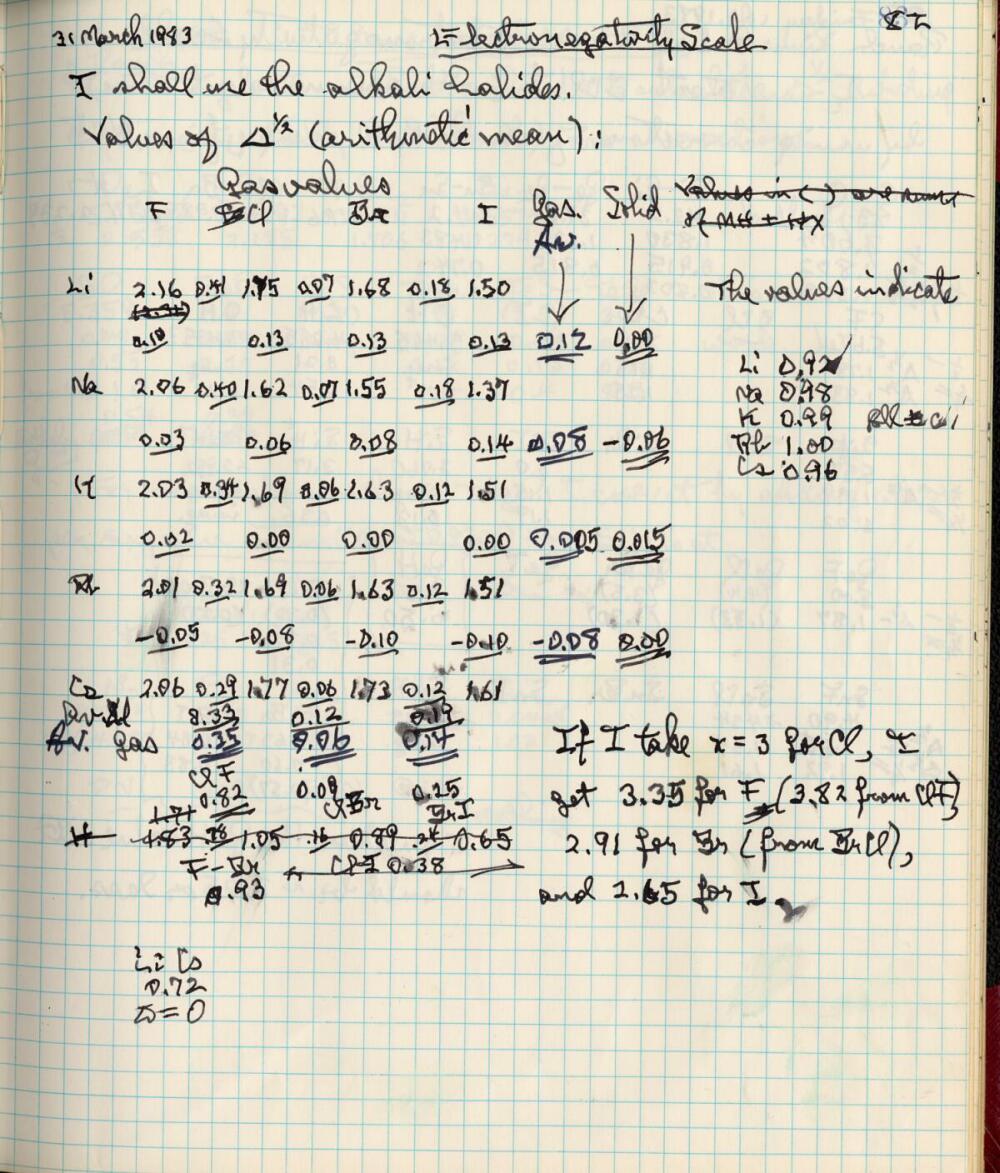 31 March 1983 Electronegativity Scale
I shall use the alkali halides.
Values of Δ^1/2 (arithmetic mean):
Gas values
F Cl Br I Gas. Av. Solid Values in ( ) are sums
The values indicate
Li 2.16 0.41 1.75 0.07 1.68 0.18 1.50
0.10 0.13 0.13 0.13 0.12 0.00
Li 0.92
Na 2.06 0.40 1.62 0.07 1.55 0.18 1.37
Na 0.98
K 0.99
0.03 0.06 0.08 0.14 0.08 -0.06
Rb 1.00
Cs 0.96
K 2.03 0.34 1.69 0.06 1.63 0.12 1.51
0.02 0.00 0.00 0.00 0.005 0.015
Rb 2.01 0.32 1.69 0.06 1.63 0.12 1.51
-0.05 -0.08 -0.10 -0.10 -0.08 0.00
Cs 2.06 0.29 1.77 0.06 1.73 0.12 1.61
0.33 0.12 0.19
Av. gas 0.35 0.06 0.14
If I take x = 3 for Cl, I
ClF 0.82 0.09 ClBr 0.25 BrI
get 3.35 for F (3.82 from ClF)
1.71
H 1.83 .78 1.05 .16 0.89 .24 0.65
2.91 for Br (from BrCl),
F-Br 0.93 ClI 0.38
and 2.65 for I.
Li Cs
0.72
Δ=0